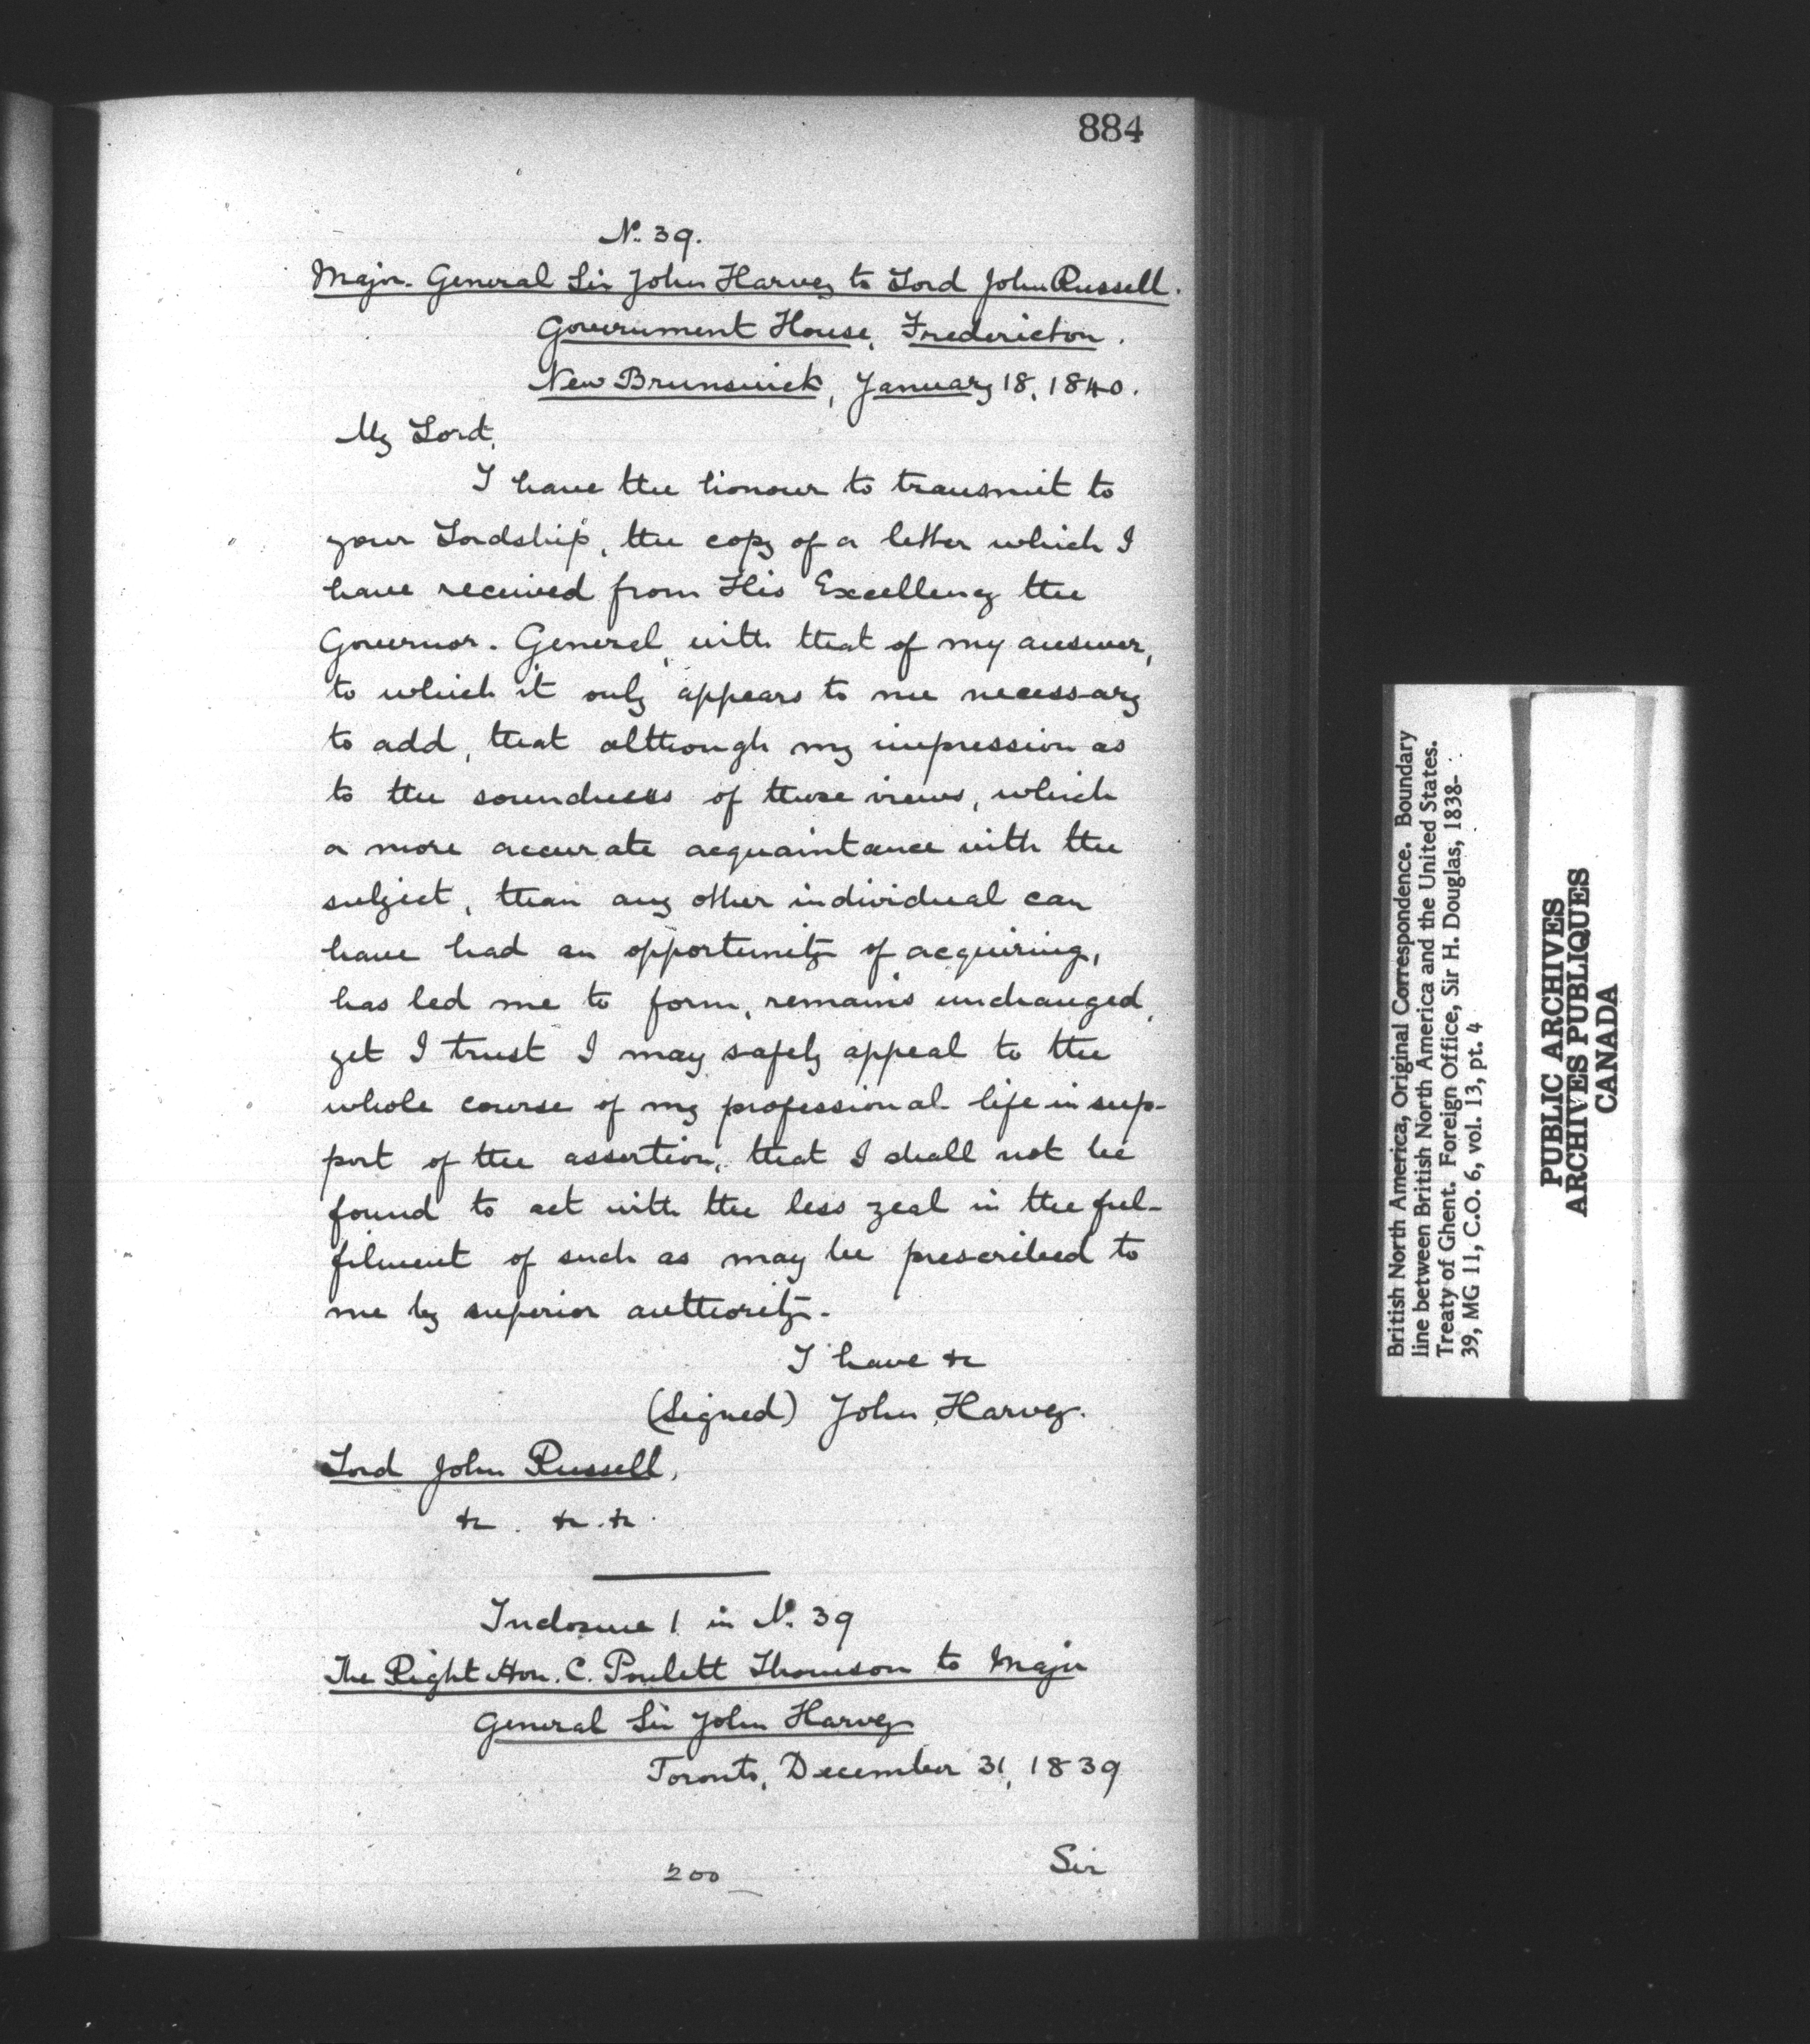 884
No. 39.
Major-General Sir John Harvey to Lord John Russell.
Government House, Fredericton.
New Brunswick, January 18, 1840.
My Lord,
I have the honour to transmit to
your Lordship, the copy of a letter which I
have received from His Excellency the
Governor-General, with that of my answer,
to which it only appears to me necessary
to add, that although my impression as
to the soundness of those views, which
a more accurate acquaintance with the
subject, than any other individual can
have had an opportunity of acquiring,
has led me to form, remains unchanged,
yet I trust I may safely appeal to the
whole course of my professional life in sup-
port of the assertion, that I shall not be
found to act with the less zeal in the ful-
filment of such as may be prescribed to
me by superior authority.
I have &c
(Signed) John Harvey.
Lord John Russell,
&c. &c. &c.
Inclosure 1 in No. 39
The Right Hon. C. Poulett Thomson to Major
General Sir John Harvey
Toronto, December 31, 1839
Sir
200
British North America, Original Correspondence. Boundary
line between British North America and the United States.
Treaty of Ghent. Foreign Office, Sir H. Douglas, 1838-
39, MG 11, C.O. 6, vol. 13, pt. 4
PUBLIC ARCHIVES
ARCHIVES PUBLIQUES
CANADA